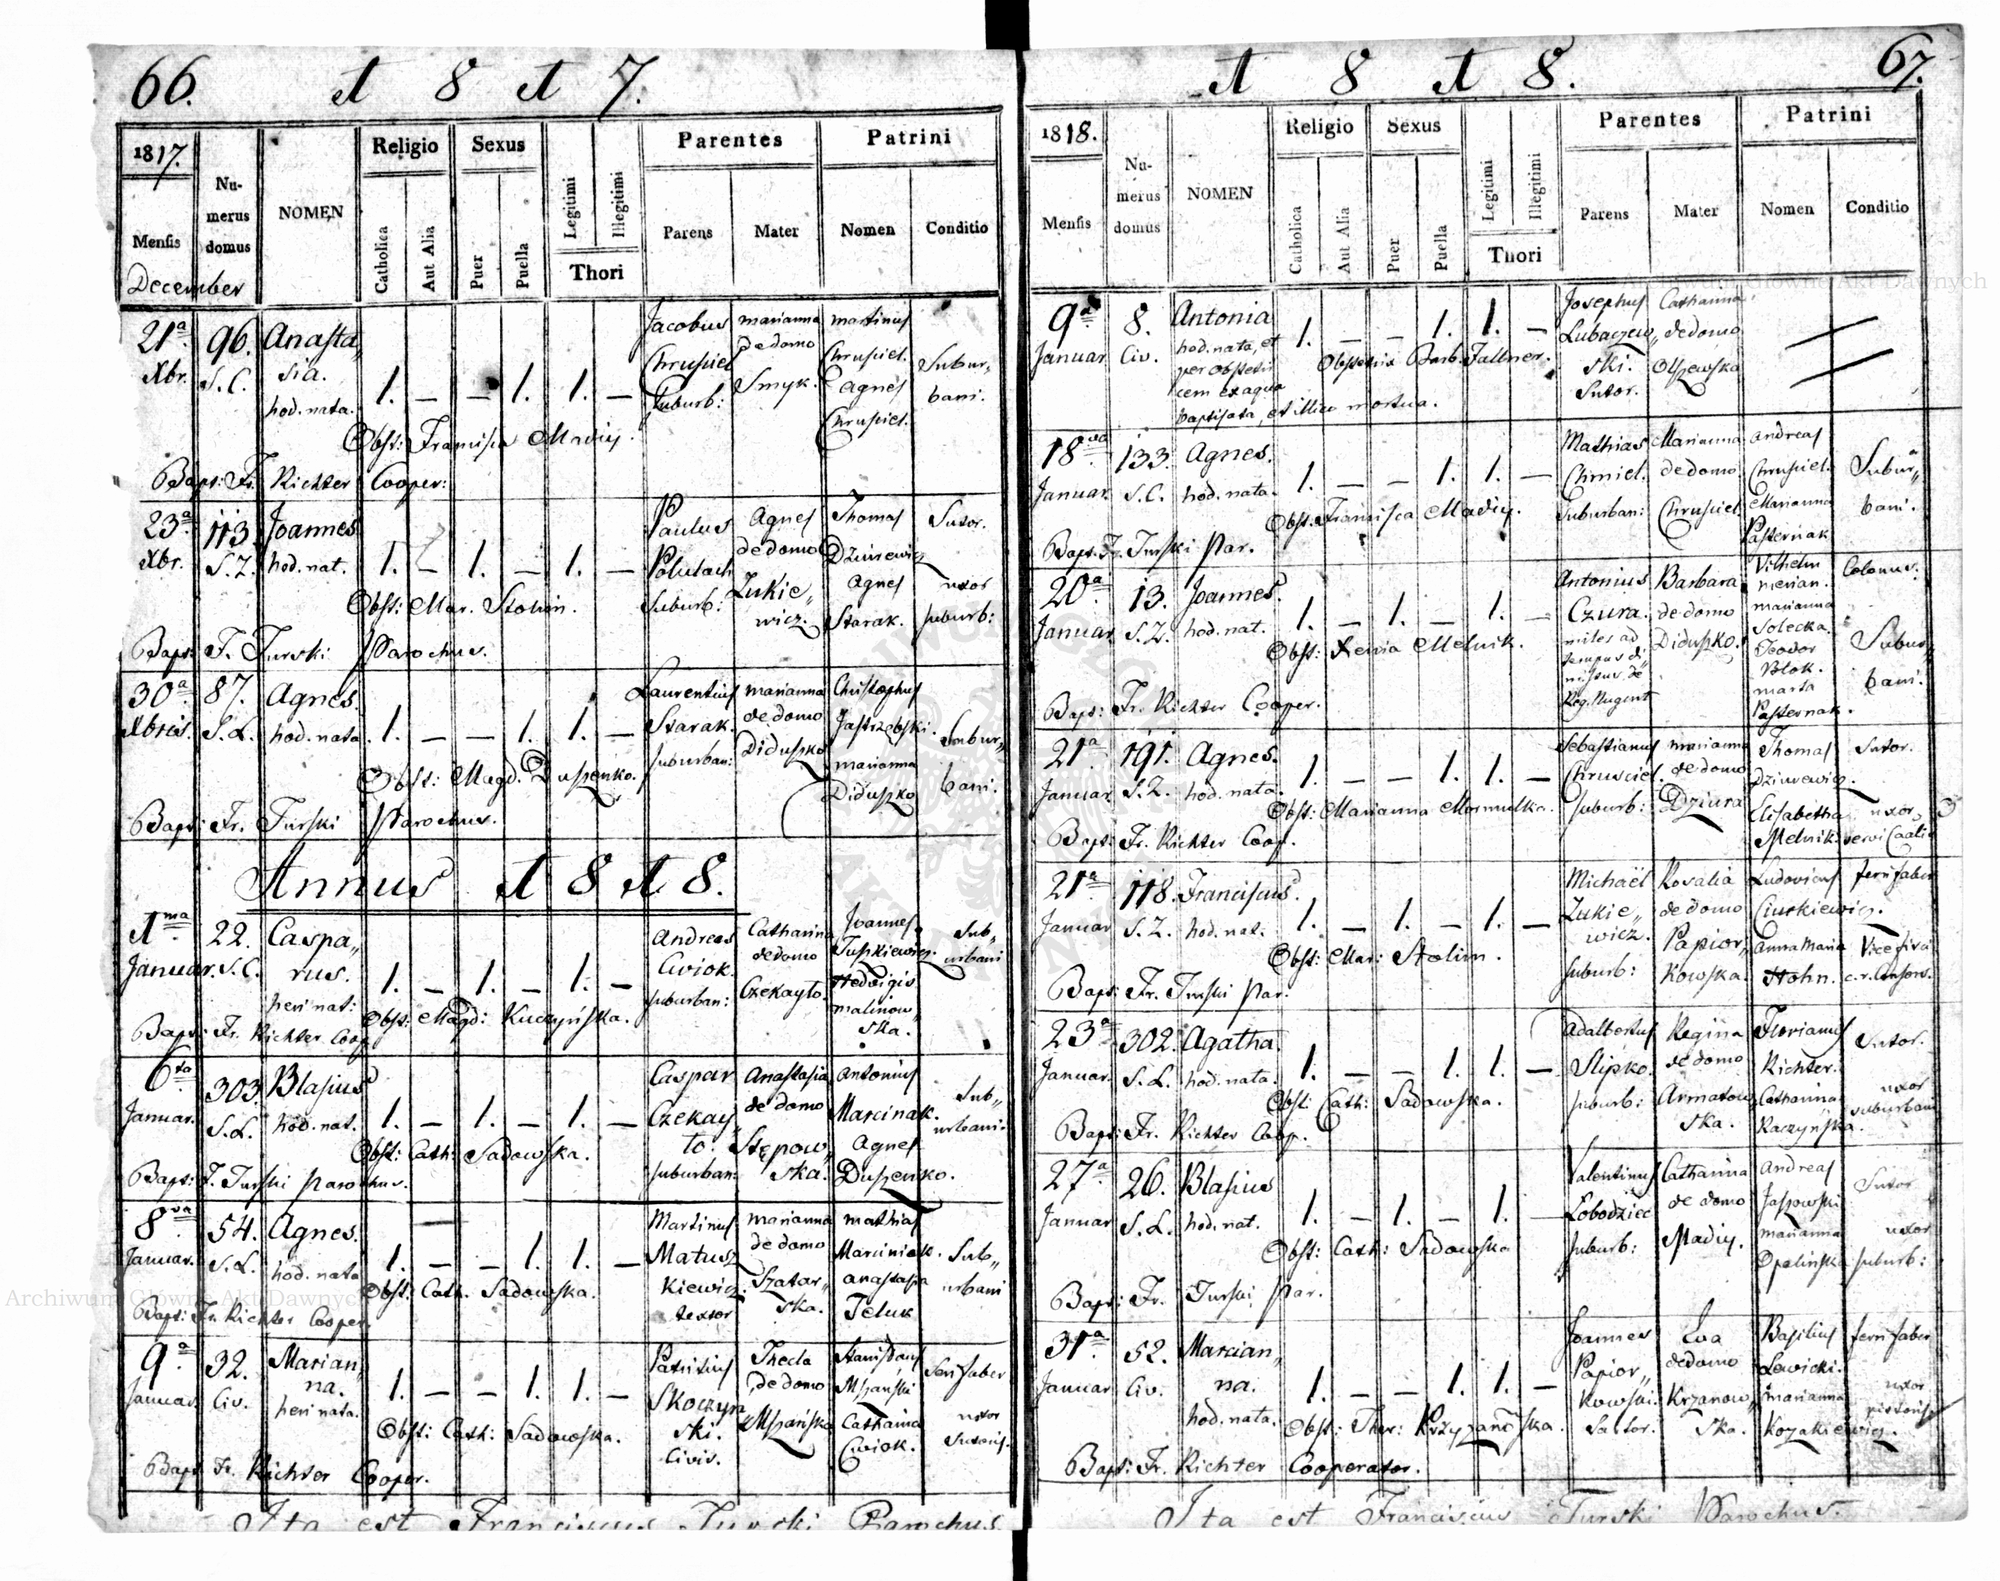 66. 1 8 1 7.
1817. Numerus domus NOMEN Religio Sexus Legitimi Illegitimi Parentes Patrini
Mensis Catholica Aut Alia Puer Puella Thori Parens Mater Nomen Conditio
December
21a 96. Anasta„ Jacobus Marianna Martinus
Xbr. S. C. sia. Chrusciel de domo Chrusciel. Subur„
hod. nata. 1. — — 1. 1. — Suburb: Smyk. Agnes bani.
Chrusciel.
Obst: Francisca Madij.
Bapt: Fr. Richter Cooper:
23a 113. Joannes Paulus Agnes Thomas Sutor.
Xbr. S. Z. hod. nat. 1. — 1. — 1. — de domo Dziurewicz
Suburb: Zukie„ Agnes uxor
wicz. Starak. suburb:
Obst: Mar. Stolin.
Bapt: F. Turski Parochus.
30a 87. Agnes. Laurentius Marianna Christophus
Xbris. S. L. hod. nata. 1. — — 1. 1. — Starak. de domo Jastrzębski. Subur„
suburban: Diduszko Marianna bani.
Diduszko
Obst: Magd. Duszenko.
Bapt: Fr. Turski Parochus.
Annus 1 8 1 8.
1ma 22. Caspa„ Andreas Catharina Joannes Sub„
Januar. S. C. rus. Cwiok. de domo Tuszkiewicz. urbani
heri nat: 1. — 1. — 1. — suburban: Czekayto. Hedvigis
Malinow„
ska.
Obst: Magd: Kuczyńska.
Bapt: Fr. Richter Coop
6ta 303. Blasius Caspar Anastasia Antonius
Januar. S. L. hod. nat. 1. — 1. — 1. — Czekay„ de domo Marcinak. Sub„
to. Stępow„ Agnes urbani.
suburban: ska. Duszenko.
Obst: Cath: Sadowska.
Bapt: F. Turski Parochus.
8va 54. Agnes. Martinus Marianna Mathias
Januar. S. L. hod. nata 1. — — 1. 1. — Matusz„ de domo Marciniak. Sub„
kiewicz. Szatar„ Anastasia urbani
textor ska. Teluk
Obst: Cath. Sadowska.
Bapt: Fr. Richter Cooper.
9a 32. Marian„ Patritius Thecla Stanislaus Ferrifaber
Januar. Civ. na. Skoczyn„ de domo Mszanski
heri nata. 1. — — 1. 1. — ski. Mszańska Catharina uxor
Civis. Cwiok. Sutoris.
Obst: Cath: Sadowska.
Bapt Fr. Richter Cooper.
Ita est Franciscus Turski Parochus.
1 8 1 8. 67.
1818. Numerus domus NOMEN Religio Sexus Legitimi Illegitimi Parentes Patrini
Mensis Catholica Aut Alia Puer Puella Thori Parens Mater Nomen Conditio
9a 8. Antonia Josephus Catharina
Januar. Civ. hod. nata, et 1. — — 1. 1. — Lubaczew„ de domo
per obstetri ski. Olszewska
cem ex aqua Sutor.
baptisata, et illico mortua.
Obstetrix Barb. Fallner.
18va 133. Agnes. Mathias Marianna Andreas
Januar. S. C. hod. nata. 1. — — 1. 1. — Chmiel. de domo Chrusciel. Subur„
Suburban: Chrusciel. Marianna bani.
Pasternak
Obst: Francisca Madij.
Bapt. Fr. Turski Par.
20a 13. Joannes. Antonius Barbara Vilhelm Colonus.
Januar. S. Z. hod. nat. 1. — 1. — 1. — Czura. de domo Marianna
miles ad Diduszko. Solecka.
tempus di Teodor Subur„
missus de Blok. bani.
Reg. Nugent Marta
Pasternak.
Obst: Xenia Melnik.
Bapt: Fr. Richter Cooper.
21a 191. Agnes. Sebastianus Marianna Thomas Sutor.
Januar. S. Z. hod. nata. 1. — — 1. 1. — Chrusciel. de domo Dziurewicz.
suburb: Dziura Elisabetha uxor
Melnik. servi
Obst: Marianna Marmulka.
Bapt: Fr. Richter Coop.
21a 118. Franciscus Michaël Rosalia Ludovicus ferrifaber
Januar. S. Z. hod. nat. 1. — 1. — 1. — Zukie„ de domo Ciuskiewicz.
wicz. Papior„ Anna Maria
suburb: kowska. Hohn.
Obst: Mar: Stolin.
Bapt: Fr. Turski Par.
23a 302. Agatha. Adalbertus Regina Florianus Sutor.
Januar. S. L. hod. nata. 1. — — 1. 1. — Slipko. de domo Richter.
suburb: Armatow„ Catharina uxor
ska. Kaczyńska. suburbani
Obst: Cath: Sadowska.
Bapt: Fr. Richter Coop.
27a 26. Blasius Valentinus Catharina Andreas Sutor
Januar. S. L. hod. nat. 1. — 1. — 1. — Łobodziec de domo Jassowski
suburb: Madij. Marianna uxor
Opalińska suburb:
Obst: Cath: Sadowska
Bapt: Fr. Turski Par.
31a 52. Marian„ Joannes Eva Basilius ferrifaber
Januar. Civ. na. Papior„ de domo Lewicki.
hod. nata. 1. — — 1. 1. — kowski. Krzanow„ Marianna uxor
Sartor. ska. Kozakiewicz. pistoris
Obst: Ther: Krzyżanowska.
Bapt: Fr. Richter Cooperator.
Ita est Franciscus Turski Parochus.
Archiwum Główne Akt Dawnych